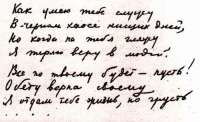 Как умею тебе служу
В черном хаосе нищих дней,
Но когда на тебя гляжу
Я теряю веру в людей.
Все по твоему будет – пусть!
Обету верна своему
Я отдам тебе жизнь, но грусть
...